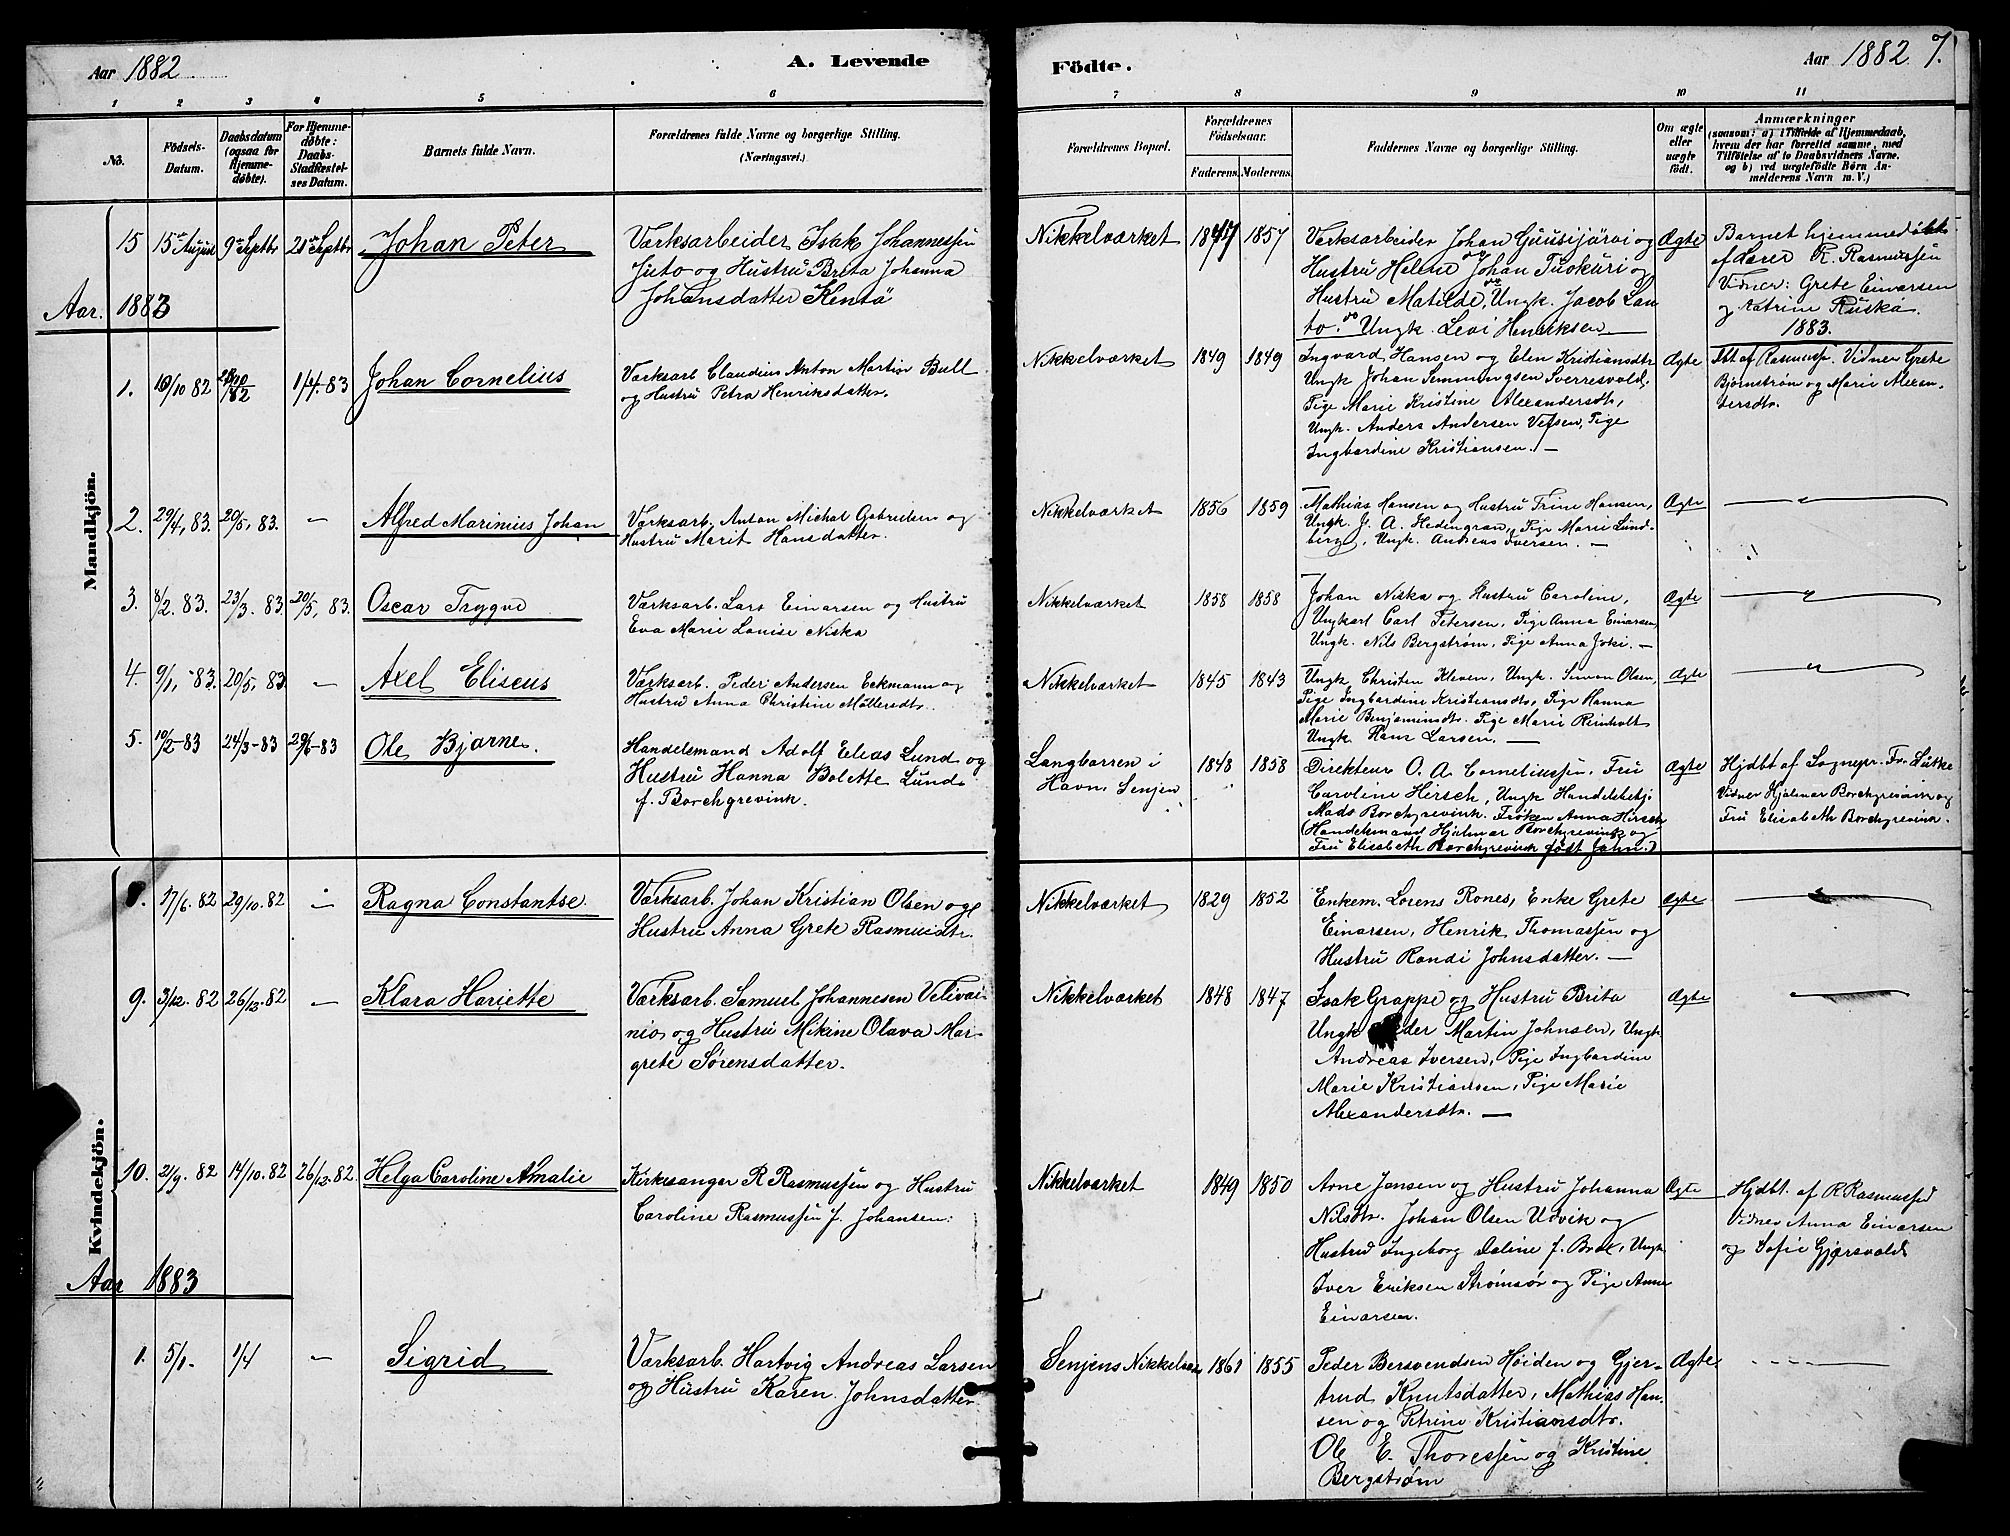 Aar 1882
A. Levende
Födte.
Aar 1882 7.
1 2 3 4 5 6 7 8 9 10 11
No.
Födsels-
Datum.
Daabsdatum
(ogsaa for
Hjemme-
døbte).
For Hjemme-
døbte:
Daabs-
Stadfæstel-
ses Datum.
Barnets fulde Navn.
Forældrenes fulde Navne og borgerlige Stilling.
(Næringsvei.)
Forældrenes Bopæl.
Forældrenes
Födselsaar.
Faderens. Moderens.
Faddernes Navne og borgerlige Stilling.
Om ægte
eller
uægte
födt.
Anmærkninger
(saasom: a) i Tilfælde af Hjemmedaab,
hvem der har forrettet samme, med
Tilføielse af to Daabsvidners Navne,
og b) ved uægtefødte Börn An-
melderens Navn m. V.)
Mandkjön.
15 15de August 9de Septbr 20de Septbr
Johan Peter
Værksarbeider Isak Johannessen
Juto og Hustru Brita Johanna
Johansdatter Kentä
Nikkelværket 1847 1857
Værksarbeider Johan Guusijärvi og
Hustru Helene, Johan Tuokuri og
Hustru Matilde, Ungk. Jacob Lau-
to, Ungk. Levi Henriksen
Ægte
Barnet hjemmedøbt
af Lærer R. Rasmussen
Vidner: Grete Einarsen
og Katrine Ruska.
1883.
Aar. 1883
1. 10/10 82 29/10 /82 1/4-83
Johan Cornelius
Værksarb Claudius Anton Martin Bull
og Hustru Petra Henriksdatter.
Nikkelværket 1849 1849
Ingvard Hansen og Elen Kristiansdtr
Ungk Johan Semmingsen Sverresvold,
Pige Marie Kristine Alexandersdtr,
Ungk. Anders Andersen Vefsen, Pige
Ingbardine Kristiansen. —
Ægte
Dbt af Rasmuss. Vidner Grete
Bjørnstrøm og Marie Alexan-
dersdtr.
2. 29/4, 83. 20/5, 83. —
Alfred Marinius Johan
Værksarb. Anton Michal Gabrielsen og
Hustru Marit Hansdatter.
Nikkelværket 1856 1859
Mathias Hansen og Hustru Trine Hansen,
Ungk. J. A. Hedengran, Pige Marie Lund-
berg, Ungk. Andreas Iversen. —
Ægte
3. 8/2. 83. 23/3. 83 20/5, 83.
Oscar Trygve
Værksarb. Lars Einarsen og Hustru
Eva Marie Louise Niska
Nikkelværket 1858 1858
Johan Niska og Hustru Caroline,
Ungkarl Carl Petersen, Pige Anna Einarsen,
Ungk. Nils Bergstrøm, Pige Anna Joki. —
Ægte
4. 9/1, -83. 20/5, 83. —
Axel Eliseus
Værksarb. Peder Andersen Eckmann og
Hustru Anna Christine Möllersdtr.
Nikkelværket 1845 1843
Ungk Christen Kleven, Ungk. Simon Olsen,
Pige Ingbardine Kristiansdtr, Pige Hanna
Marie Benjaminsdtr. Pige Marie Reinholt
Ungk. Hans Larsen. —
Ægte
5. 10/2-83 24/3-83 29/6-83
Ole Bjarne.
Handelsmand Adolf Elias Lund og
Hustru Hanna Bolette Lund
f. Borchgrevink.
Langbarren i
Havn, Senjen
1848 1858
Direkteur O. A. Corneliussen, Fru
Caroline Hirsch, Ungk Handelsbetj.
Mads Borchgrevink. Frøken Anna Hirsch
(Handelsmand Hjalmar Borchgrevink og
Fru Elisabeth Borchgrevink født Jahn.)
Ægte
Hjdbt af Sognepr. Fr. Lütke
Vidner Hjalmar Borchgrevink og
Fru Elisabeth Borchgrevink.
Kvindekjön.
17/6. 82 29/10. 82 —
Ragna Constantse.
Værksarb. Johan Kristian Olsen og
Hustru Anna Grete Rasmusdtr.
Nikkelværket 1829 1852
Enkem. Lorens Rones, Enke Grete
Einarsen, Henrik Thomassen og
Hustru Randi Johnsdatter. —
Ægte
9. 3/12. 82 26/12. 82 —
Klara Hariette
Værksarb. Samuel Johannesen Velivai-
nio og Hustru Mikine Olava Mar-
grete Sørensdatter.
Nikkelværket 1848 1847
Isak Grappe og Hustru Brita
Ungk Peder Martin Johnsen, Ungk
Andreas Iversen, Pige Ingbardine
Marie Kristiansen, Pige Marie
Alexandersdtr. —
Ægte
10. 21/9. 82 14/10. 82 26/12. 82.
Helga Caroline Amalie
Kirkesanger R Rasmussen og Hustru
Caroline Rasmussen f. Johansen.
Nikkelværket 1849 1850
Arne Jensen og Hustru Johanna
Nilsdtr. Johan Olsen Udvik og
Hustru Ingeborg Daline f. Bræ, Ungk
Iver Eriksen Strømsør og Pige Anna
Einarsen.
Ægte
Hjdbt. af R Rasmussen
Vidner Anna Einarsen
og Sofie Gjersvold
Aar 1883
1. 5/1- 1/4 —
Sigrid
Værksarb. Hartvig Andreas Larsen
og Hustru Karen Johnsdatter
Senjens Nikkelværk 1861 1855
Peder Bersvendsen Høiden og Gjer-
trud Knutsdatter, Mathias Han-
sen og Petrine Kristiansdtr.
Ole E. Thoressen og Kristine
Bergstrøm
Ægte